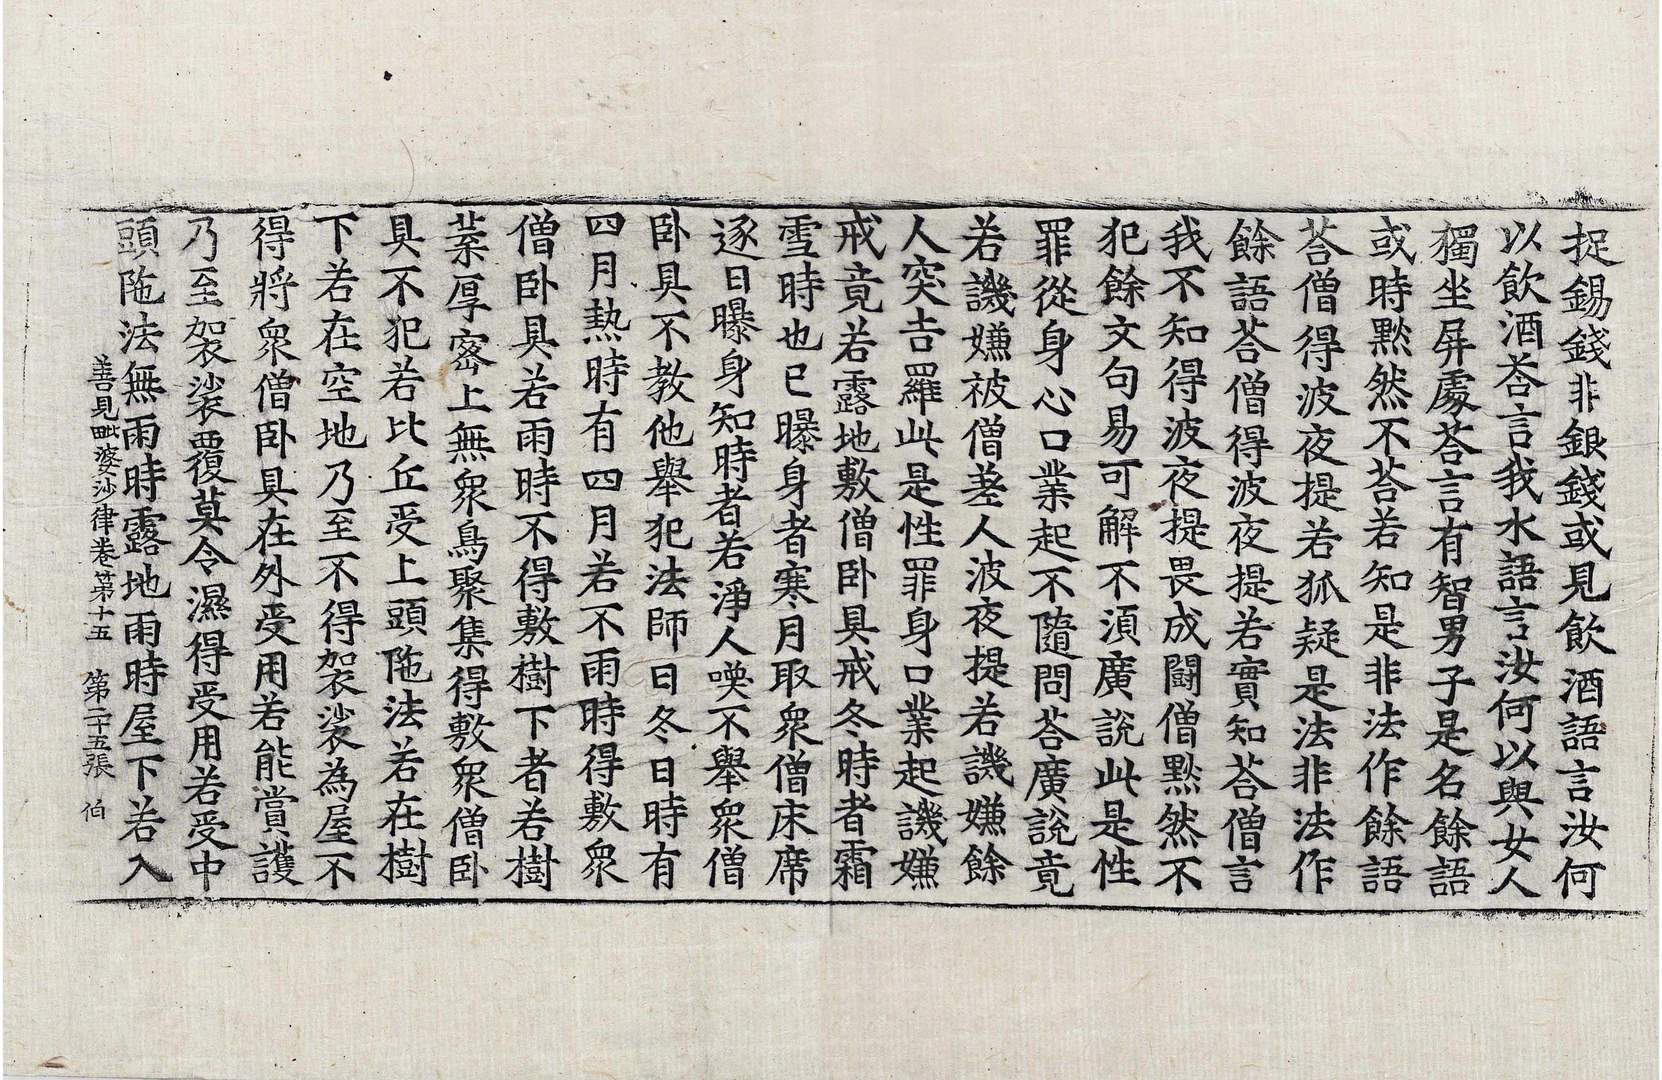 捉錫錢非銀錢或見飲酒語言汝何
以飲酒荅言我水語言汝何以與女人
獨坐屏處荅言有智男子是名餘語
或時黙然不荅若知是非法作餘語
荅僧得波夜提若狐疑是法非法作
餘語荅僧得波夜提若實知荅僧言
我不知得波夜提畏成闘僧黙然不
犯餘文句易可解不湏廣說此是性
罪從身心口業起不隨問荅廣說竟
若譏嫌被僧差人波夜提若譏嫌餘
人突吉羅此是性罪身口業起譏嫌
戒竟若露地敷僧卧具戒冬時者霜
雪時也已曝身者寒月取衆僧床席
逐日曝身知時者若淨人喚不舉衆僧
卧具不教他舉犯法師曰冬日時有
四月熱時有四月若不雨時得敷衆
僧卧具若雨時不得敷樹下者若樹
葉厚宻上無衆鳥聚集得敷衆僧卧
具不犯若比丘受上頭陁法若在樹
下若在空地乃至不得袈裟為屋不
得將衆僧卧具在外受用若能賞護
乃至袈裟覆莫令濕得受用若受中
頭陁法無雨時露地雨時屋下若入
善見毗婆沙律卷第十五　第二十五張　伯